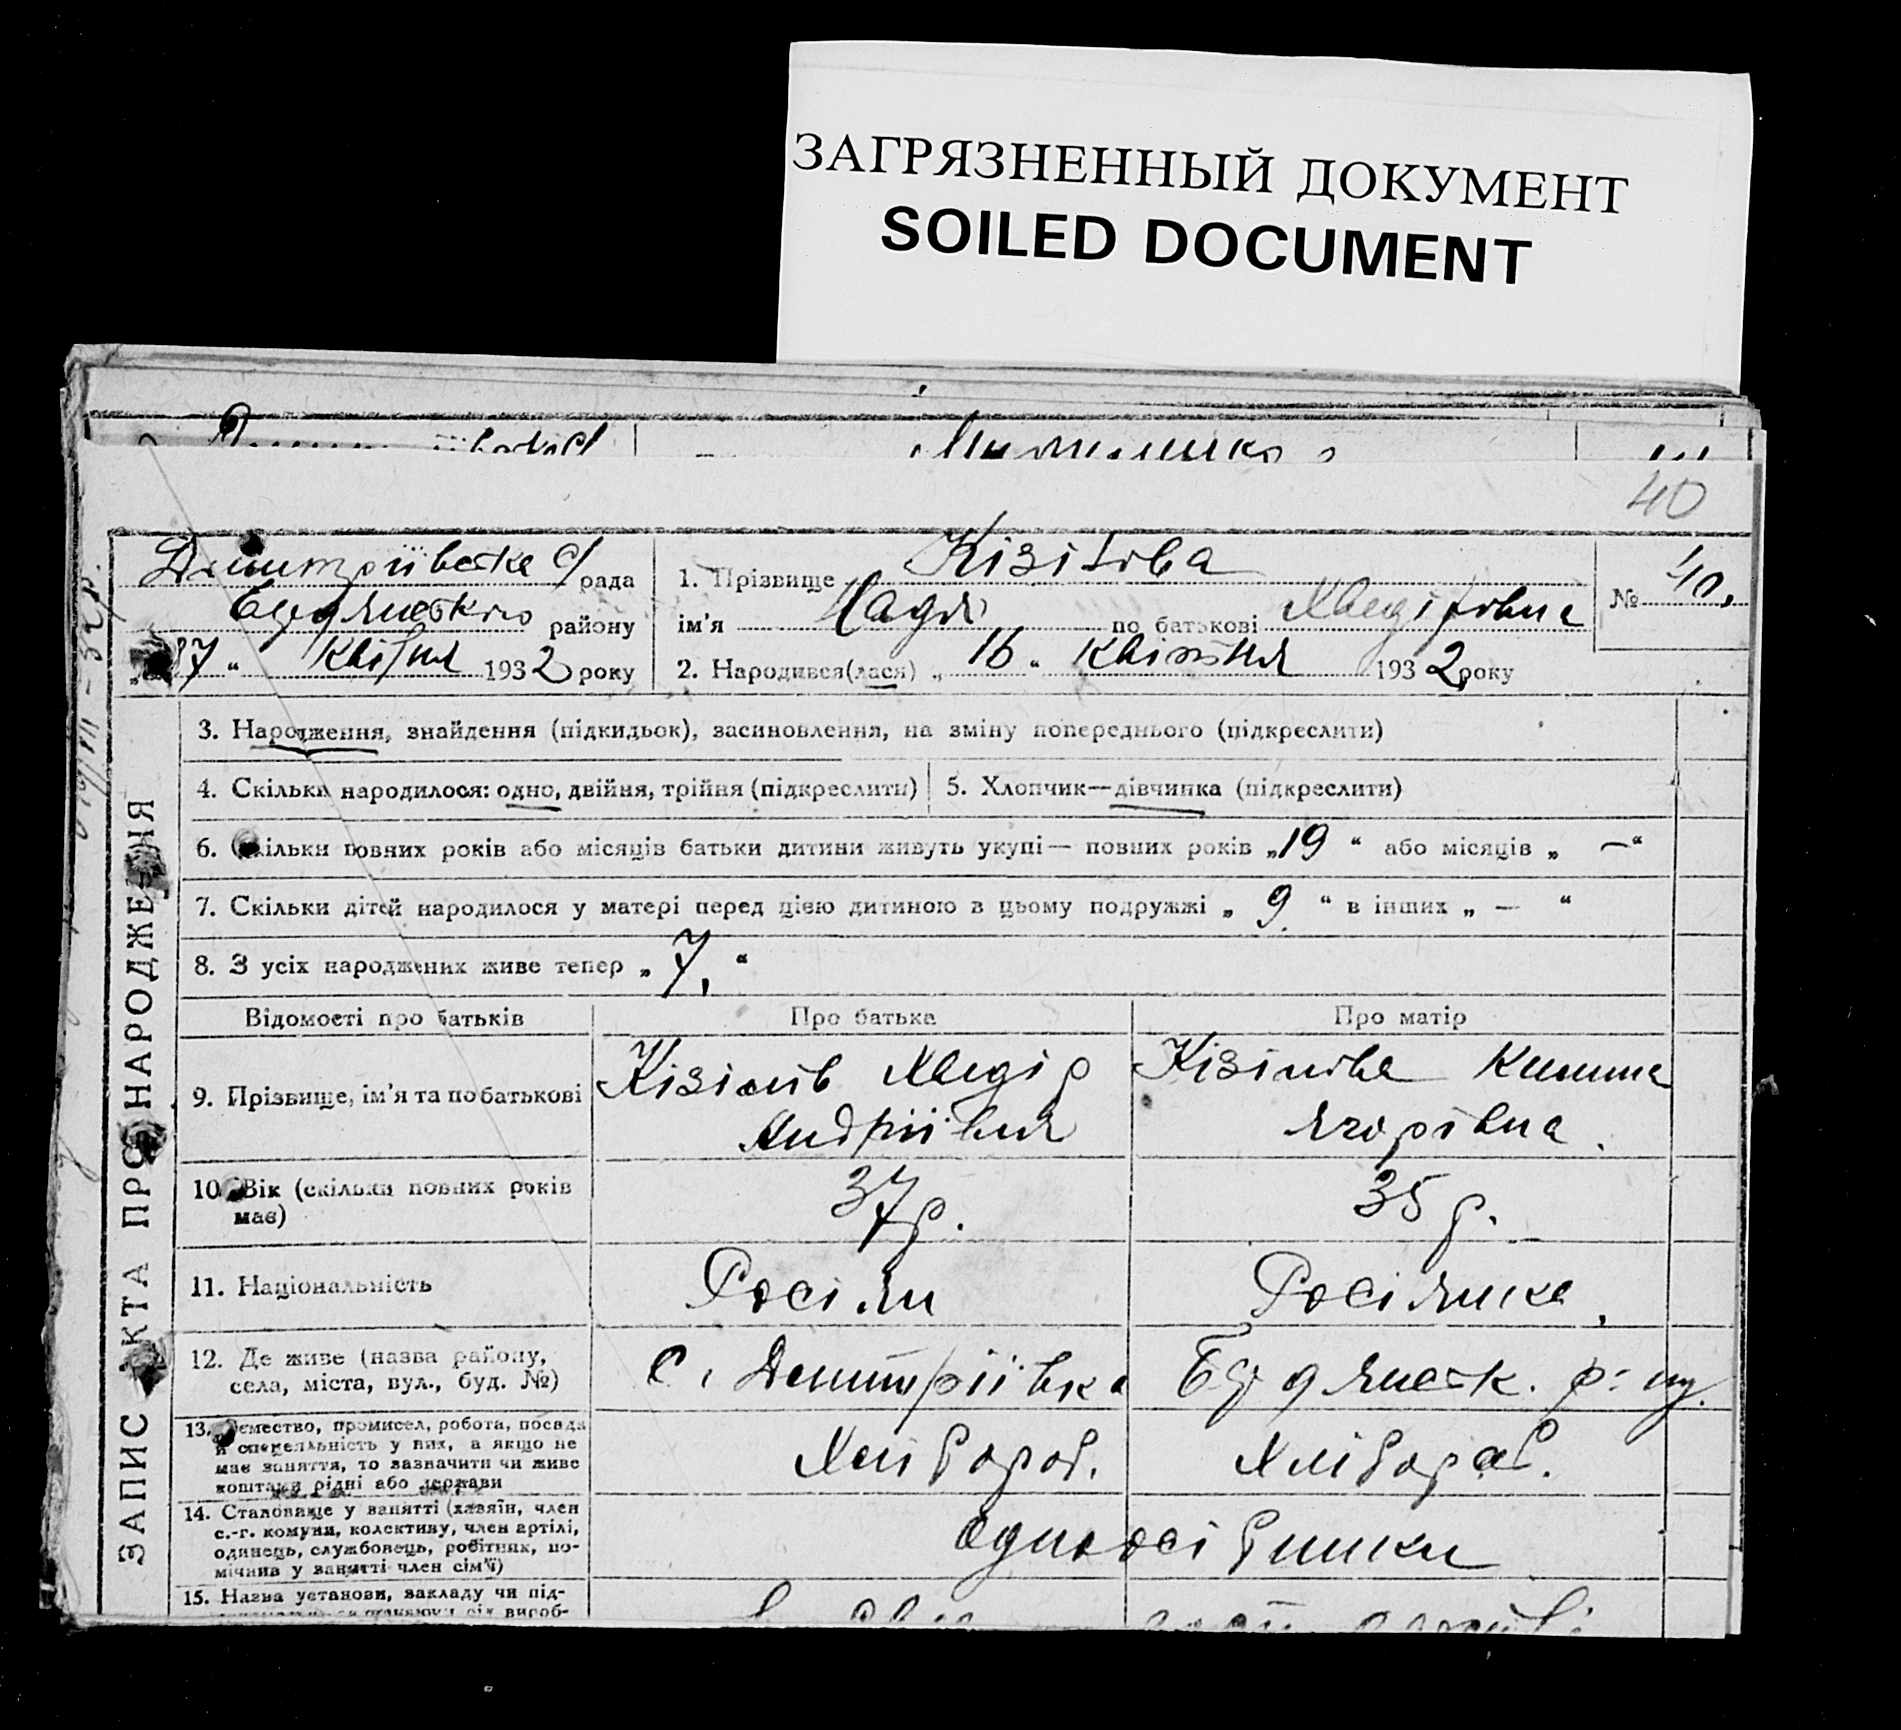 ЗАГРЯЗНЕННЫЙ ДОКУМЕНТ
SOILED DOCUMENT
40
ЗАПИС АКТА ПРО НАРОДЖЕННЯ
Дмитріївська с/рада
району
27 " Квітня 1932 року
1. Прізвище
ім'я Надя по батькові
2. Народився(лася) " 16 " квітня 1932 року
№ 40.
3. Народження, знайдення (підкидьок), засиновлення, на зміну попереднього (підкреслити)
4. Скільки народилося: одно, двійня, трійня (підкреслити)
5. Хлопчик—дівчинка (підкреслити)
6. Скільки повних років або місяців батьки дитини живуть укупі — повних років „19 “ або місяців „ —“
7. Скільки дітей народилося у матері перед цією дитиною в цьому подружжі „ 9 “ в інших „ — “
8. З усіх народжених живе тепер „ 7, “
Відомості про батьків
Про батька
Про матір
9. Прізвище, ім'я та по батькові
Андрійович
Ягорівна.
10. Вік (скільки повних років
має)
37 р.
35 р.
11. Національність
Росіян
Росіянка.
12. Де живе (назва району,
села, міста, вул., буд. №)
с. Дмитріївка
Бердянськ. р-ну.
13. Ремество, промисел, робота, посада
й спеціяльність у них, а якщо не
має заняття, то зазначити чи живе
коштами рідні або держави
Хлібороб.
Хлібороб.
14. Становище у занятті (хазяїн, член
с.-г. комуни, колективу, член артілі,
одинець, службовець, робітник, по-
мічнив у занятті член сім'ї)
одноосібники
15. Назва установи, закладу чи під-